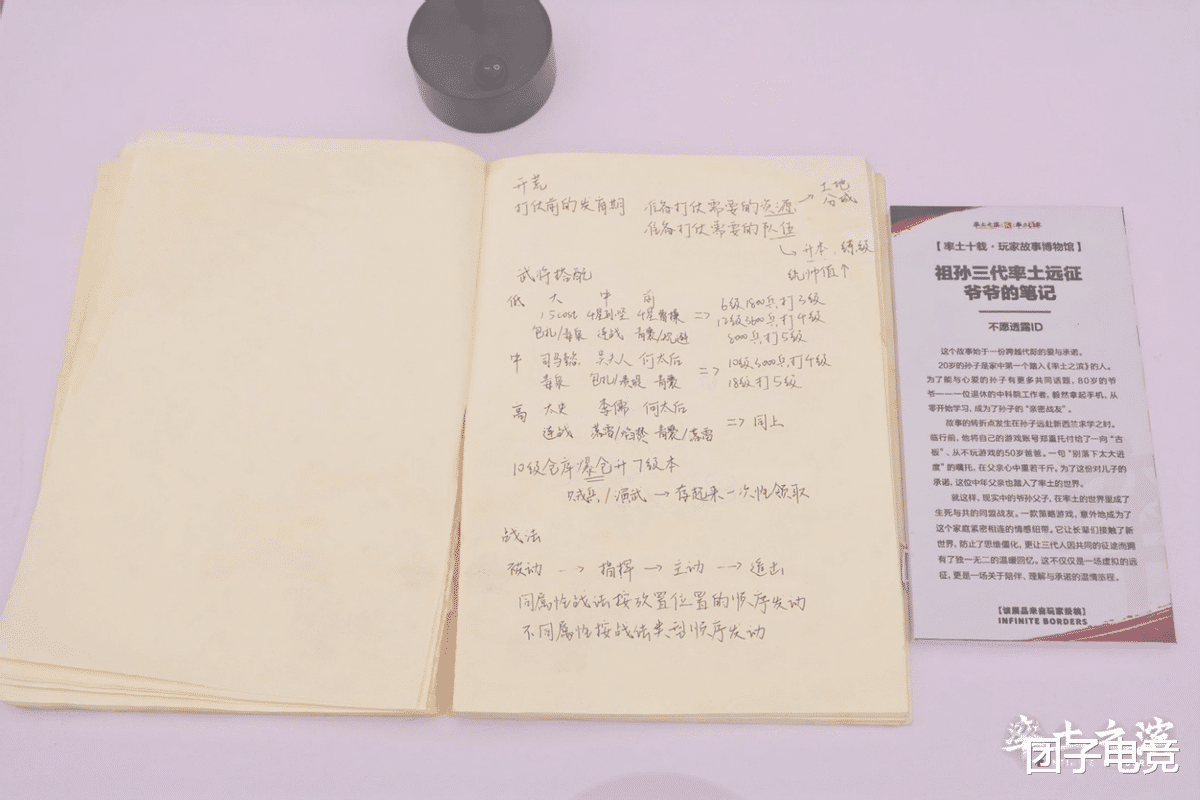 开荒
打仗前的发育期 准备打仗需要的资源 → 土地
分城
准备打仗需要的队伍
↳ 升本、练级
统帅值↑
武将搭配
低 大 中 前
1.5cost 4星 4星曹操 => 6级1800兵打3级
包扎/毒泉 连战 青囊 12级3600兵打4级
8000兵打5级
中 司马懿 吴夫人 何太后 => 10级5000兵打4级
毒泉 包扎 青囊 18级打5级
高 太史 李儒 何太后 => 同上
连战 落雷/焰焚 青囊/落雷
10级仓库爆仓升7级本
贼兵/演武 → 存起来一次性领取
战法
被动 → 指挥 → 主动 → 追击
同属性战法按放置位置的顺序发动
不同属性按战法类型顺序发动
【 率土十载·玩家故事博物馆 】
祖孙三代率土远征
爷爷的笔记
不愿透露ID
这个故事始于一份跨越代际的爱与承诺。
20岁的孙子是家中第一个踏入《率土之滨》的人。
为了能与心爱的孙子有更多共同话题，80岁的爷
爷——一位退休的中科院工作者，毅然拿起手机，从
零开始学习，成为了孙子的“亲密战友”。
故事的转折点发生在孙子远赴新西兰求学之时。
临行前，他将自己的游戏账号郑重托付给了一向“古
板”、从不玩游戏的50岁爸爸。一句“别落下太大进
度”的嘱托，在父亲心中重若千斤。为了这份对儿子的
承诺，这位中年父亲也踏入了率土的世界。
就这样，现实中的爷孙父子，在率土的世界里成了
生死与共的同盟战友。一款策略游戏，意外地成为了
这个家庭紧密相连的情感纽带。它让长辈们接触了新
世界，防止了思维僵化，更让三代人因共同的征途而拥
有了独一无二的温暖回忆。这不仅仅是一场虚拟的远
征，更是一场关于陪伴、理解与承诺的温情旅程。
【该展品来自玩家投稿】
INFINITE BORDERS
率土之滨
团子电竞